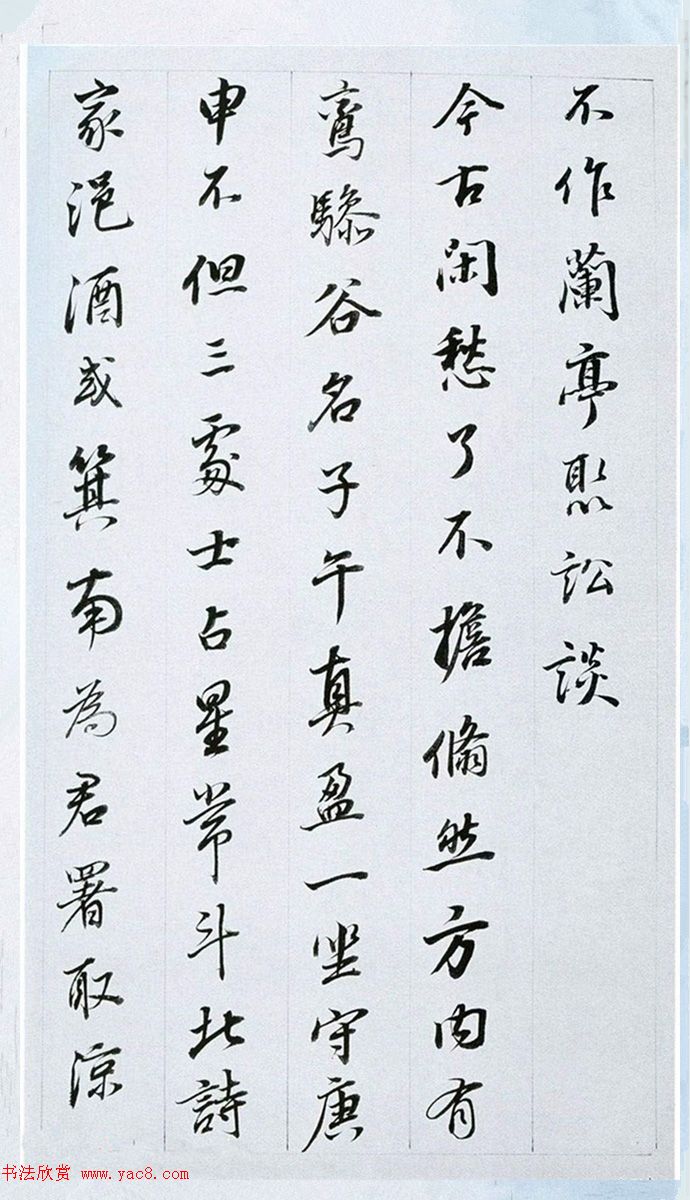 不作蘭亭聚訟談
今古閑愁了不擔翛然方内有
鸞驂谷名子午真盈一坐守庚
申不但三處士占星常斗北詩
家浥酒或箕南為君署取涼
书法欣赏 www.yac8.com